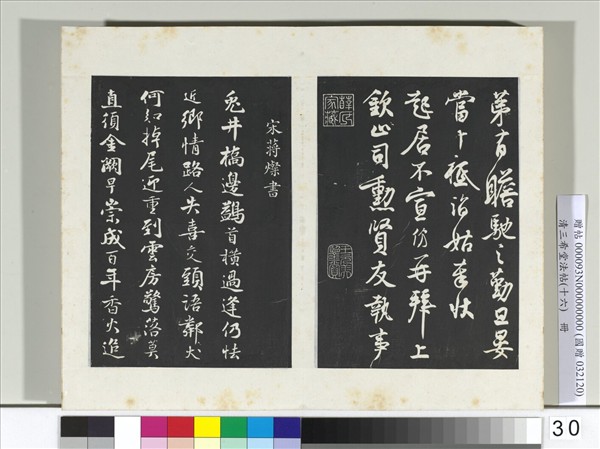 第有瞻馳之勤旦晏
當卜祗詣姑奉狀
起居不宣仿再拜上
欽止司勳賢友執事
宋蔣燦書
兔井橋邊鷁首橫過逢仍怯
近鄉情路人失喜交頭語鄰犬
何知掉尾迎重到雲房驚洛莫
直須金闕早崇成百年香火追
贈帖 000093N000000000 (國贈 032120)
清三希堂法帖(十六) 冊
30